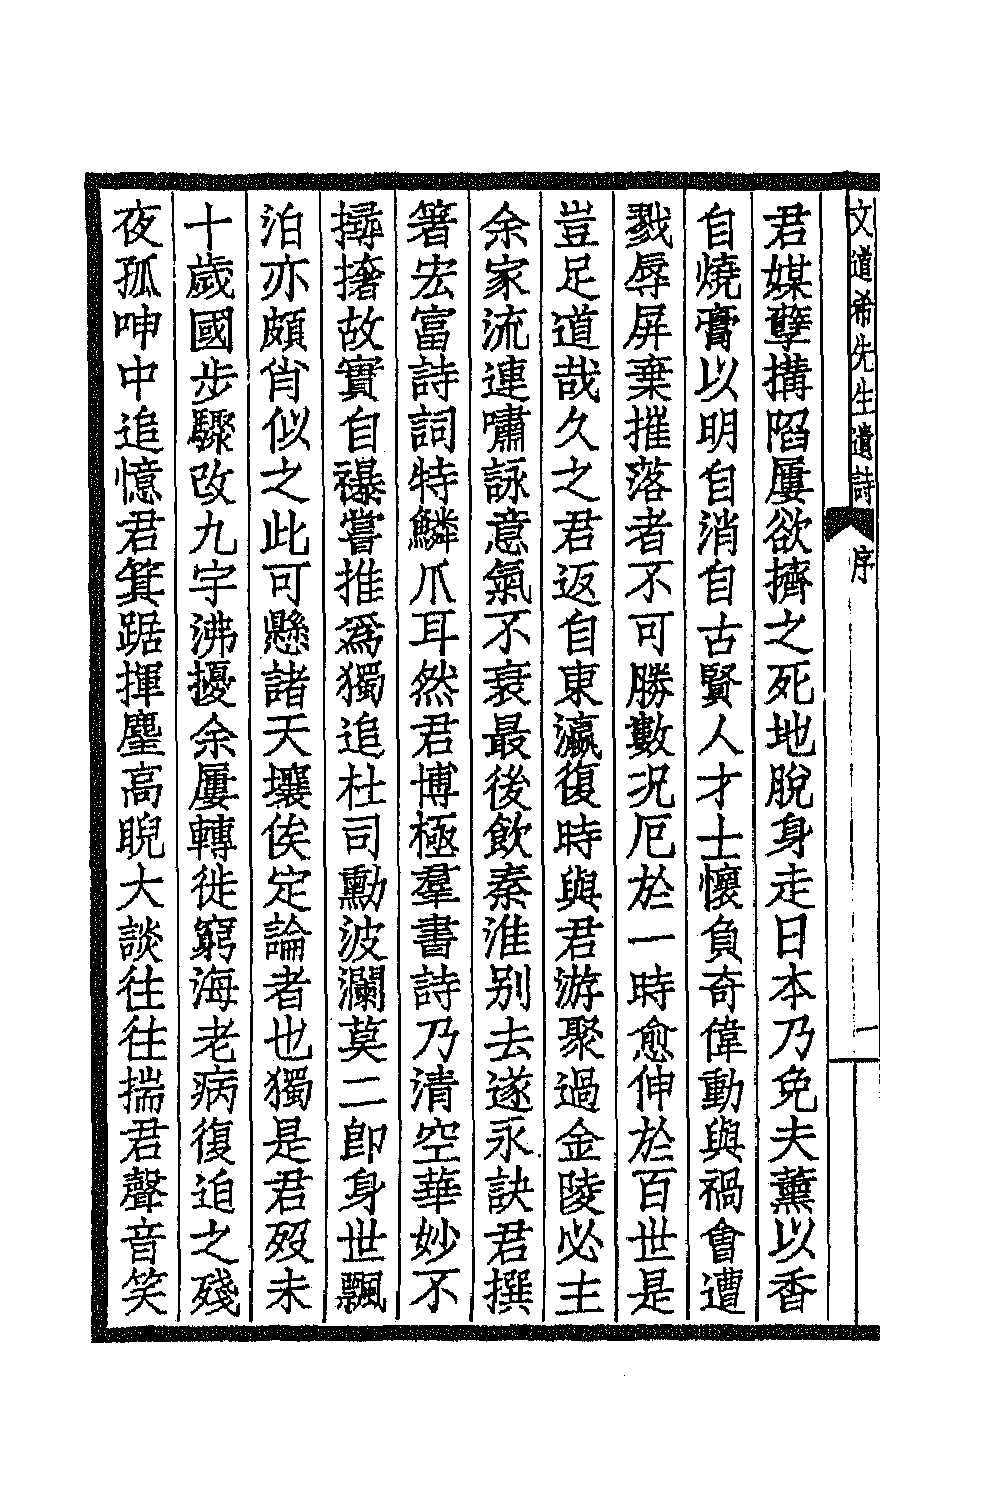 文道希先生遺詩
序
一
君媒孽搆陷屢欲擠之死地脫身走日本乃免夫薰以香
自燒膏以明自消自古賢人才士懷負奇偉動與禍會遭
戮辱屏棄摧落者不可勝數况厄於一時愈伸於百世是
豈足道哉久之君返自東瀛復時與君游聚過金陵必主
余家流連嘯詠意氣不衰最後飲秦淮别去遂永訣君撰
箸宏富詩詞特鱗爪耳然君博極羣書詩乃清空華妙不
撏撦故實自襮嘗推爲獨追杜司勳波瀾莫二卽身世飄
泊亦頗肖似之此可懸諸天壤俟定論者也獨是君歿未
十歲國步驟改九宇沸擾余屢轉徙窮海老病復迫之殘
夜孤呻中追憶君箕踞揮麈高睨大談往往揣君聲音笑